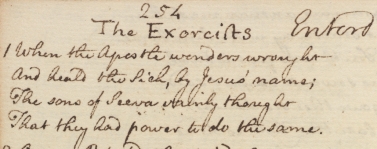 254
The Exorcists Enterd
1 When the Apostle wonders wrought
And heald the Sick, by Jesus' name;
The sons of Sceva vainly thought
That they had power to do the same.